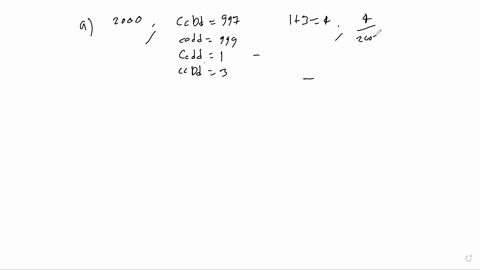 a) 2000 ; CcBd = 997 1+3=4 ; 4/200
ccdd = 999
Ccdd = 1 -
ccDd = 3 -